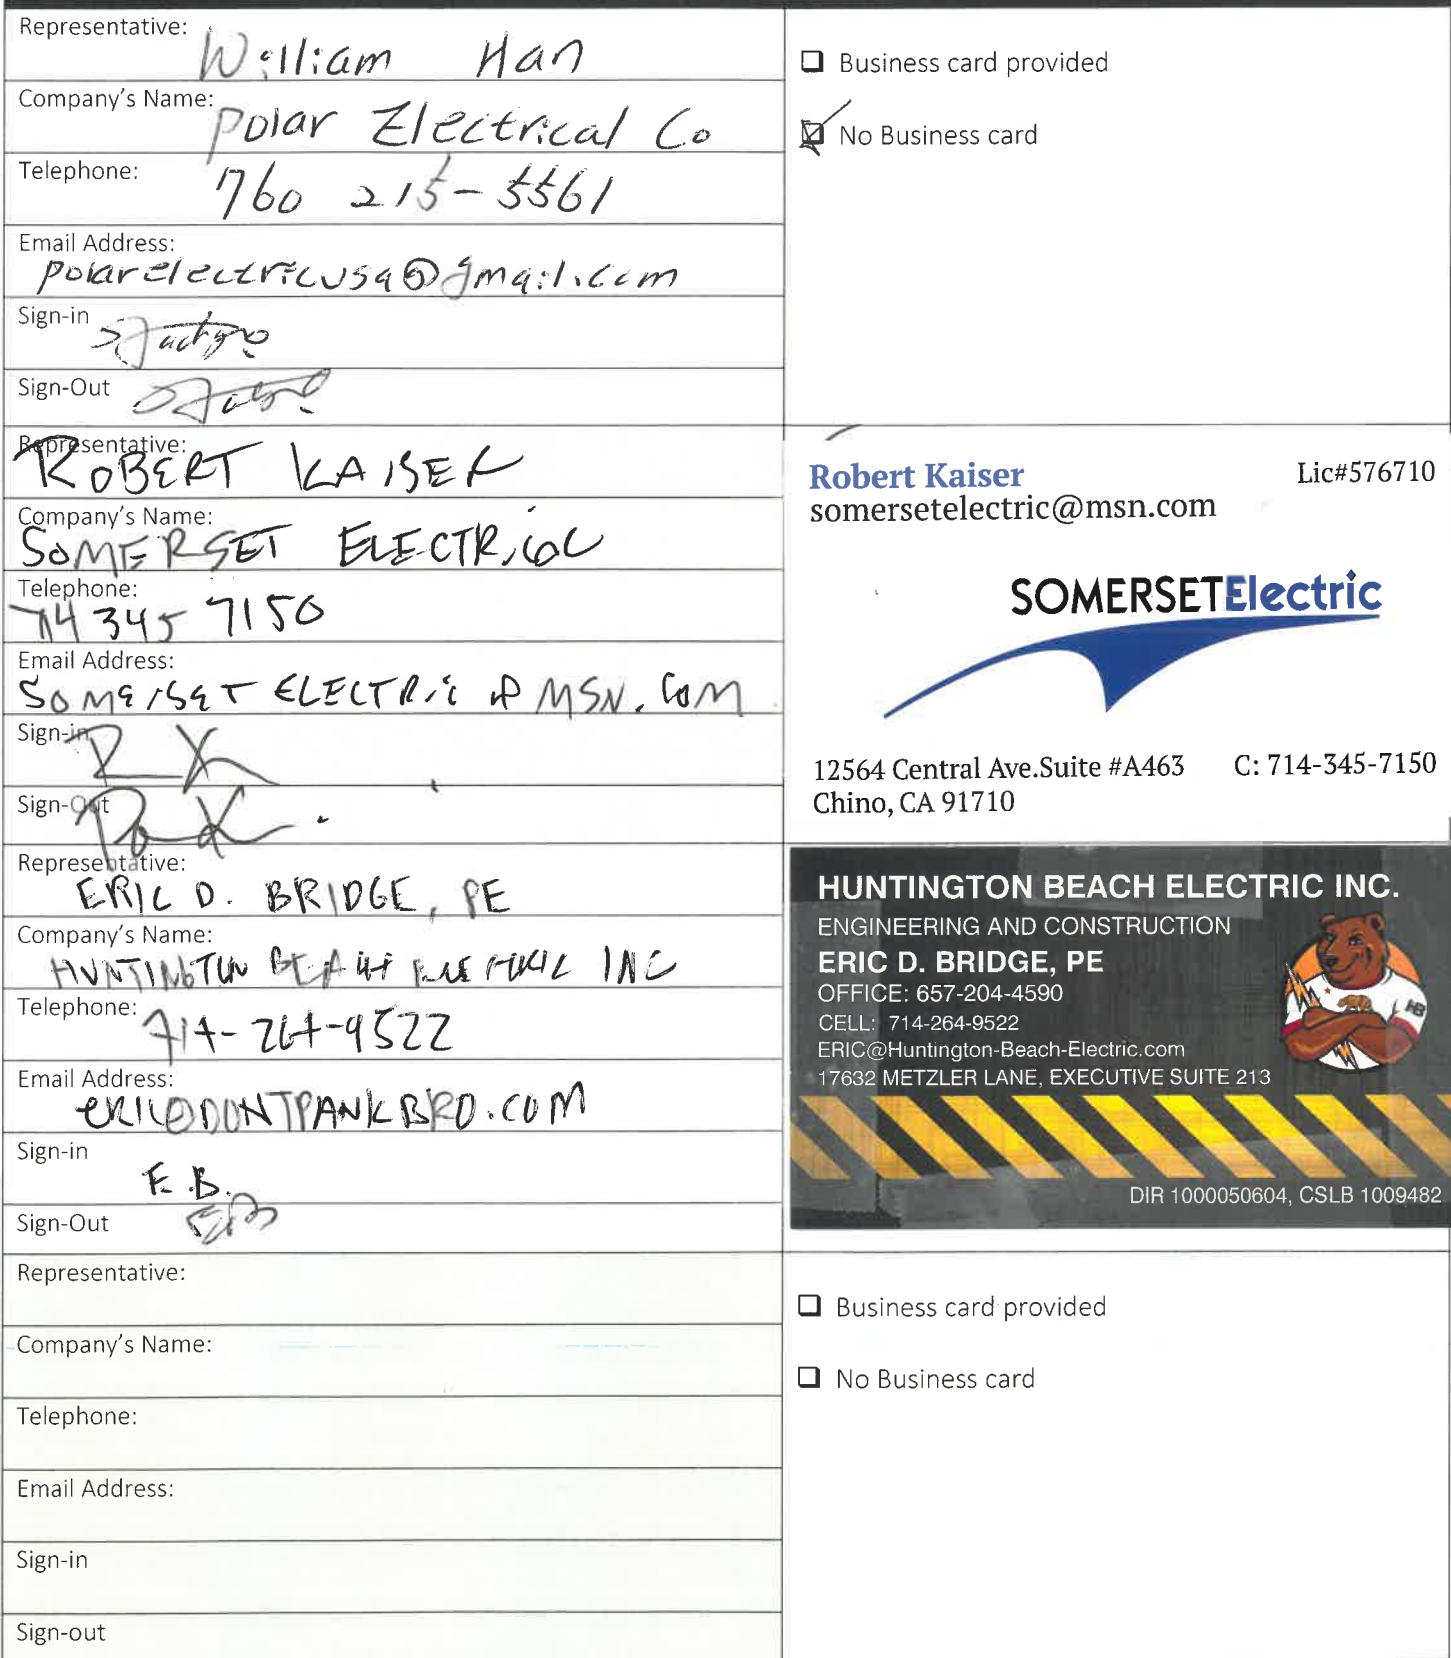 Representative: William Han
Company's Name: Polar Electrical Co
Telephone: 760 215-5561
Email Address:
polarelectricusa@gmail.com
Sign-in
Sign-Out
❑ Business card provided
❑ No Business card
Representative:
ROBERT KAISER
Company's Name:
SOMERSET ELECTRICAL
Telephone:
714 345 7150
Email Address:
SOMERSET ELECTRIC @ MSN. COM
Sign-in RK
Sign-Out
Robert Kaiser Lic#576710
somersetelectric@msn.com
SOMERSETElectric
12564 Central Ave.Suite #A463 C: 714-345-7150
Chino, CA 91710
Representative:
ERIC D. BRIDGE, PE
Company's Name:
HUNTINGTON BEACH ELECTRIC INC
Telephone: 714-264-9522
Email Address:
ERIC@DONTPANICBRO.COM
Sign-in
E.B.
Sign-Out EB
HUNTINGTON BEACH ELECTRIC INC.
ENGINEERING AND CONSTRUCTION
ERIC D. BRIDGE, PE
OFFICE: 657-204-4590
CELL: 714-264-9522
ERIC@Huntington-Beach-Electric.com
17632 METZLER LANE, EXECUTIVE SUITE 213
HB
DIR 1000050604, CSLB 1009482
Representative:
Company's Name:
Telephone:
Email Address:
Sign-in
Sign-out
❑ Business card provided
❑ No Business card